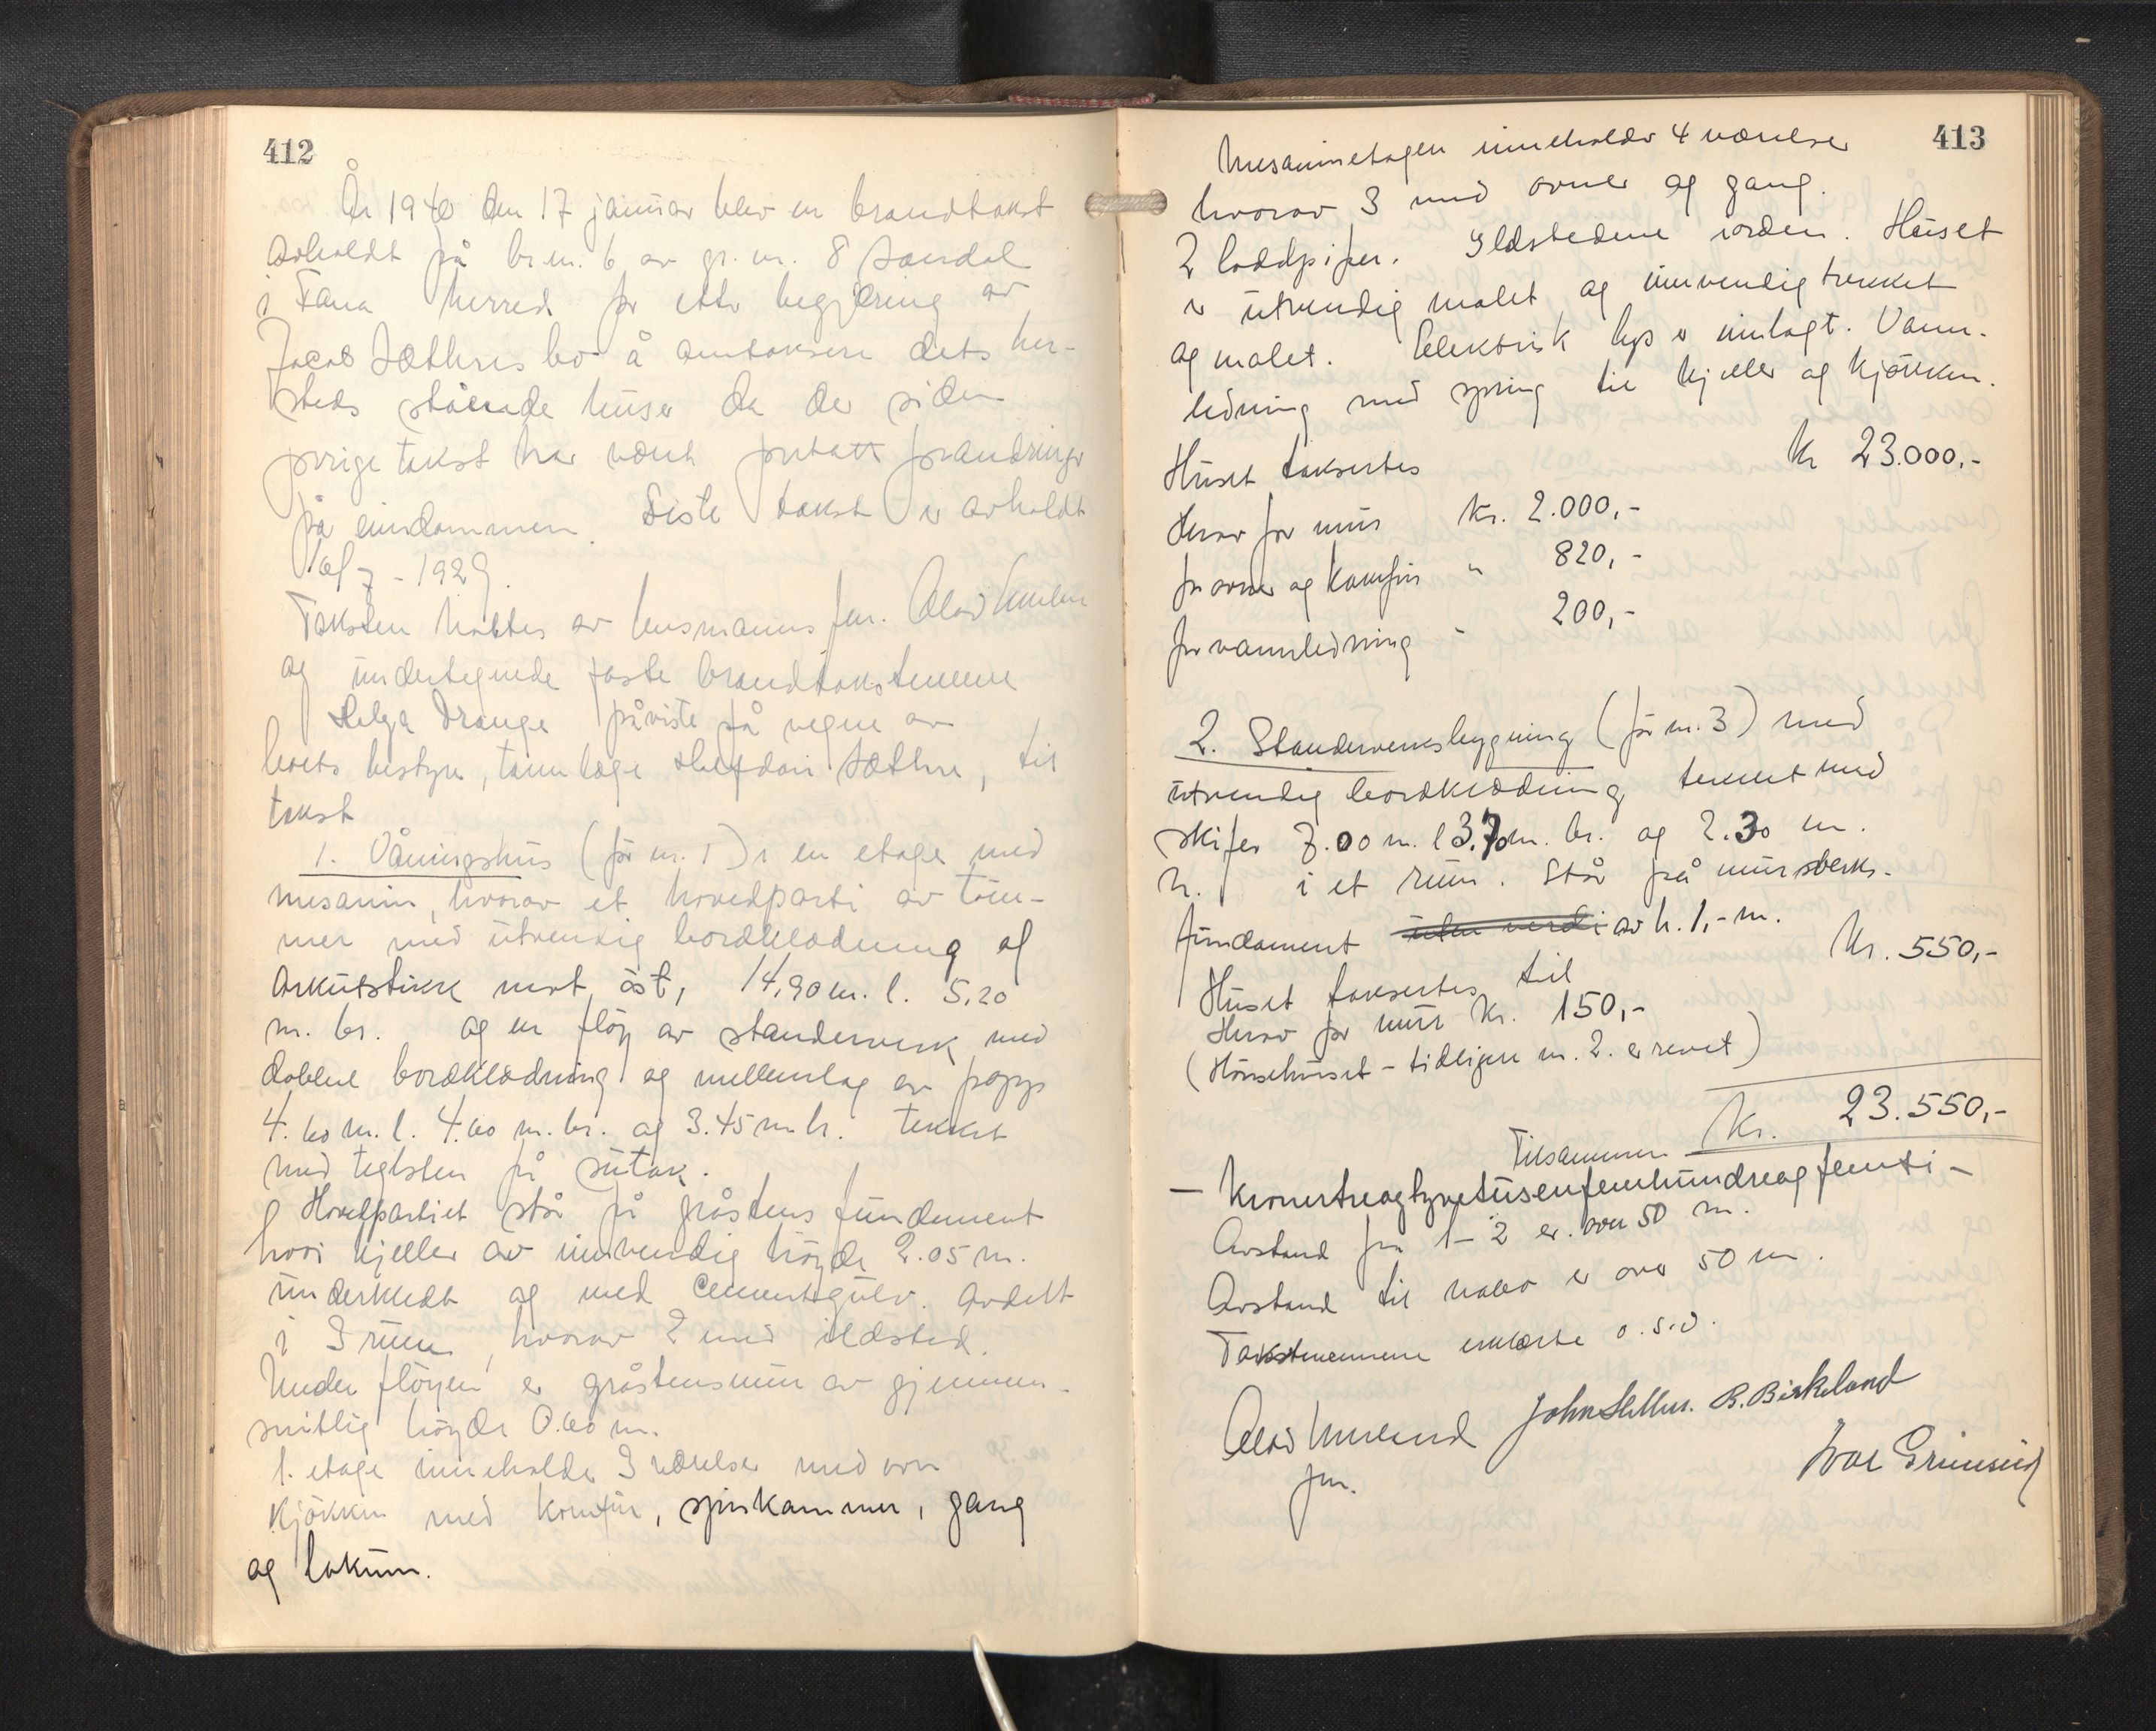 412
År 1940 den 17 januar blev en brandtakst
avholdt på br.nr. 6 av gr. nr. 8 Sandal
i Fana herred for etter begjæring av
Jacob Sæthres bo å omtaksere dets her-
steds stående huser da der siden
forrige takst har vært foretatt forandringer
på eiendommen. Siste takst er avholdt
7 - 1929.
Taksten holdtes av lensmanns fm. Olav
og undertegnede faste brandtakstmenn
Helga Drange påviste på vegne av
boets bestyrer, tannlæge Halfdan Sæthre, til
takst
1. Våningshus (før nr. 1) i en etage med
mesanin, hvorav et hovedparti av töm-
mer med utvendig bordklædning og
Arkutstikk mot öst, 14,90 m. l. 5,20
m. br. og en flöy av standerverk med
dobbel bordklædning og mellemlag av papp
4.60 m. l. 4.60 m. br. og 3.45 m h. tekket
med teglsten på sutak.
Hovedpartiet står på gråstens fundament
hvori kjeller av innvendig höyde 2.05 m.
underkledt og med cementgulv. Avdelt
i 3 rum, hvorav 2 med ildsted.
Under flöyen er gråstensmur av gjennem-
snitlig höyde 0.60 m.
1. etage inneholder 3 værelser med ovn
Kjökken med komfur, spiskammer, gang
og lokum.
413
Mesaninetagen inneholder 4 værelser
hvorav 3 med ovner og gang.
2 loddpiper. Ildstedene iorden. Huset
er utvendig malt og innvendig trukket
og malet. Elektrisk lys er innlagt. Vann-
ledning med spring til kjeller og kjökken.
Huset taksertes kr 23.000,-
Herav for mur kr. 2.000,-
for ovner og komfur " 820,-
for vannledning " 200,-
2. Standerverksbygning (før nr. 3) med
utvendig bordklædning tekket med
skifer 7.00 m. l 3.70 m. br. og 2.30 m.
h. i et rum. Står på murstens-
fundament uten verdi av h. 1,- m.
Huset taksertes til kr. 550,-
Herav for mur kr. 150,-
(Hönsehuset - tidligere nr. 2. er revet)
Tilsammen kr. 23.550,-
- Kronertreogtyvetusenfemhundreogfemti -
Avstand fra 1 - 2 er over 50 m.
Avstand til nabo er over 50 m.
Takstmennene erklærte o.s.v.
Olav John B. Birkeland
fm. Ivar Grimseid